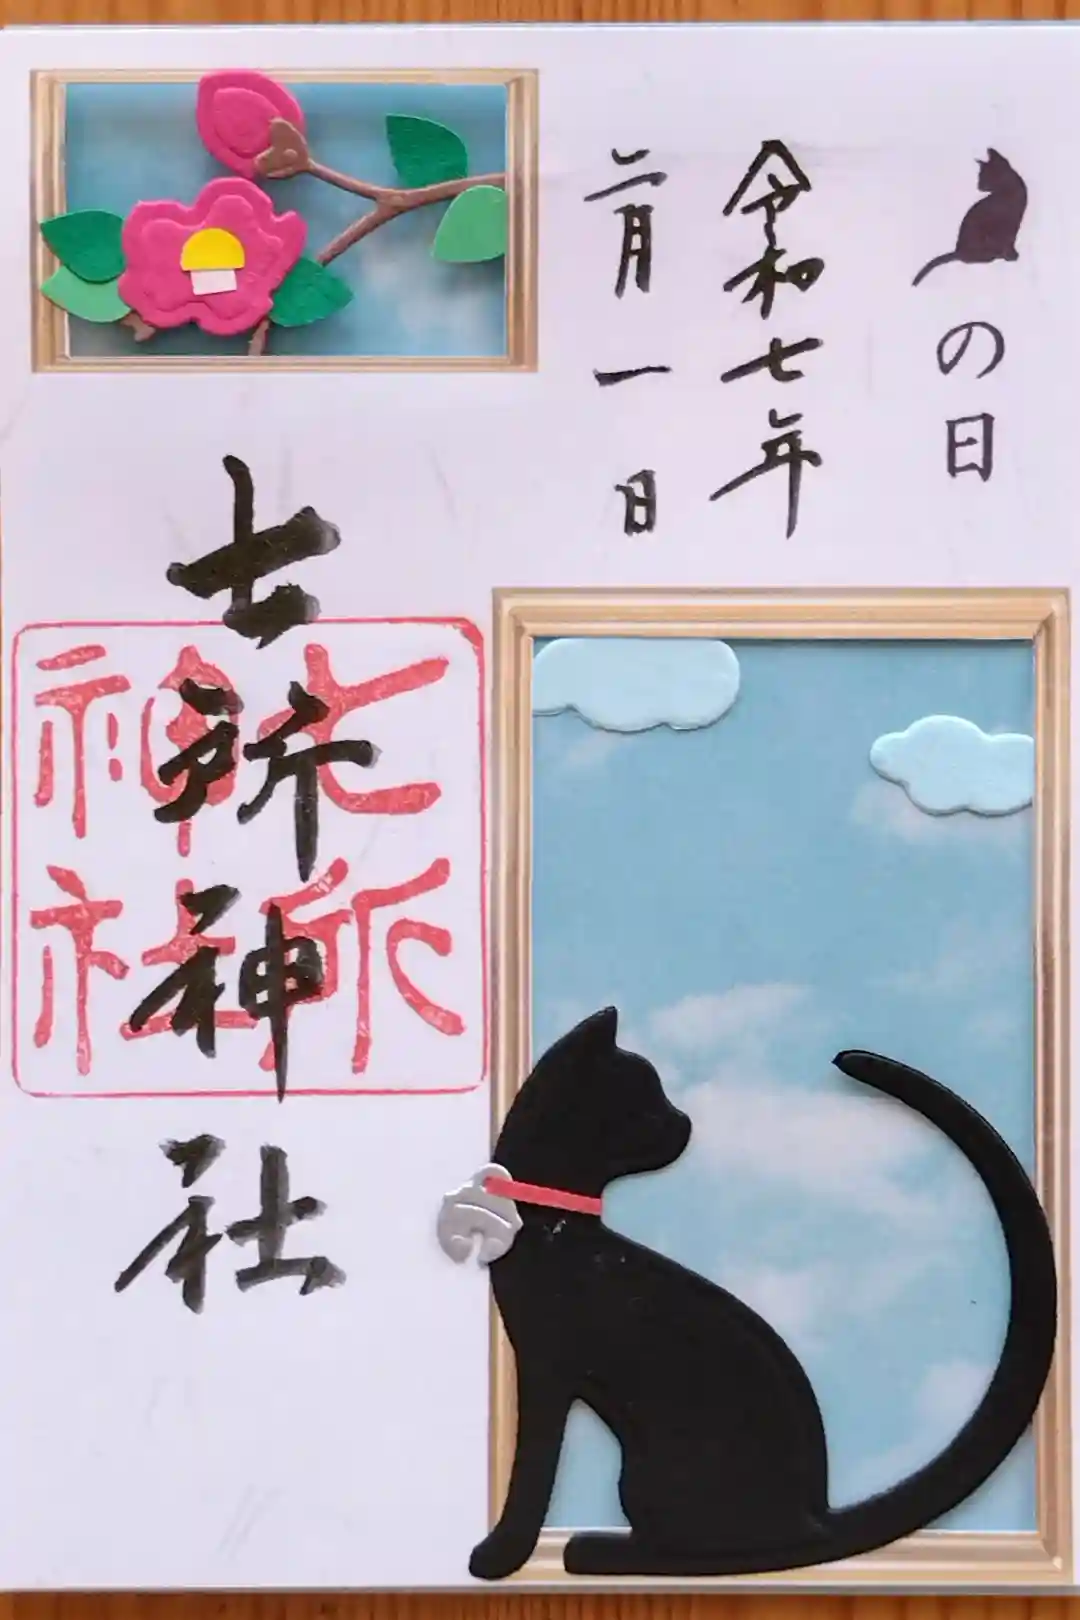 の日
令和七年
二月一日
七所神社
七所
神社